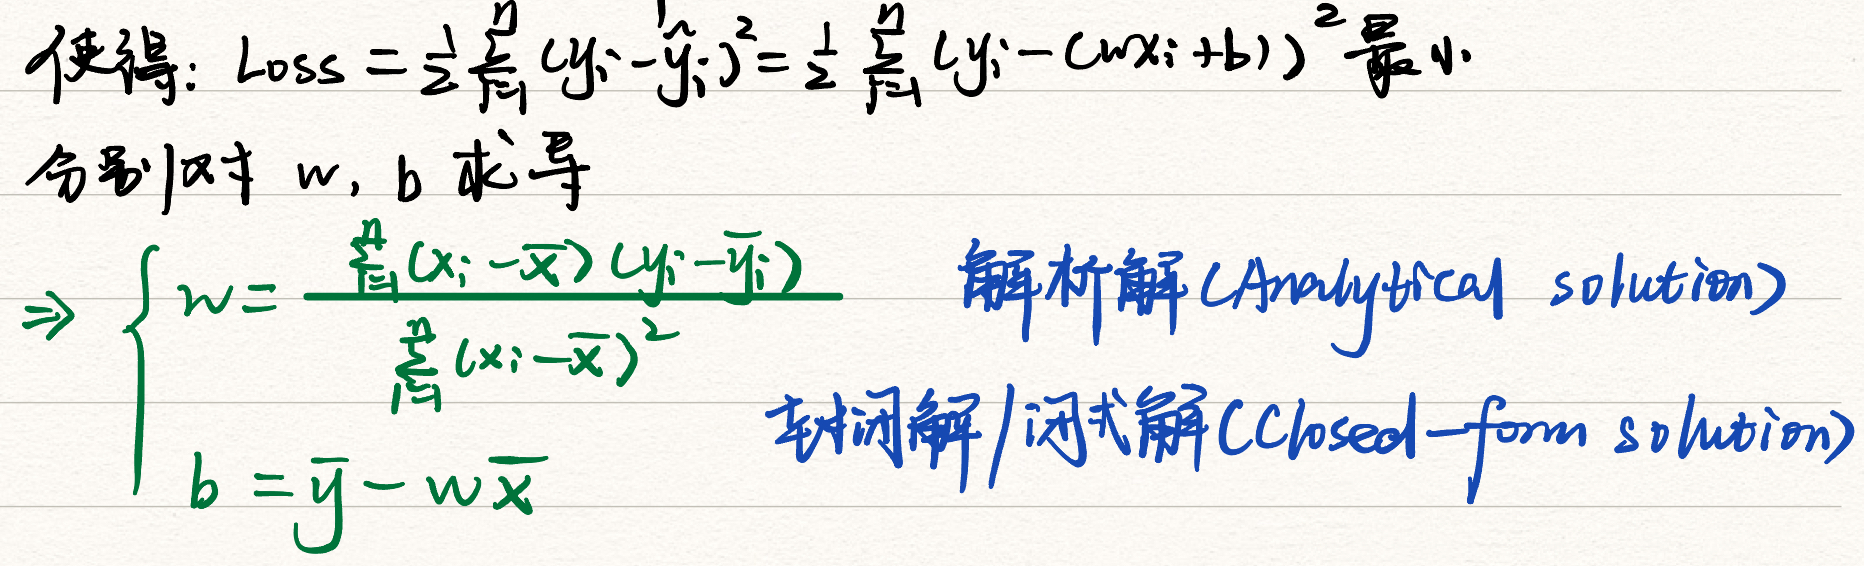 使得: Loss = 1/2 ∑_{i=1}^{n} (y_i - ŷ_i)² = 1/2 ∑_{i=1}^{n} (y_i - (wx_i + b))² 最小
分别对 w, b 求导
⇒ { w = ∑_{i=1}^{n} (x_i - x̄)(y_i - ȳ_i) / ∑_{i=1}^{n} (x_i - x̄)²
解析解 (Analytical solution)
封闭解/闭式解 (Closed-form solution)
b = ȳ - w x̄